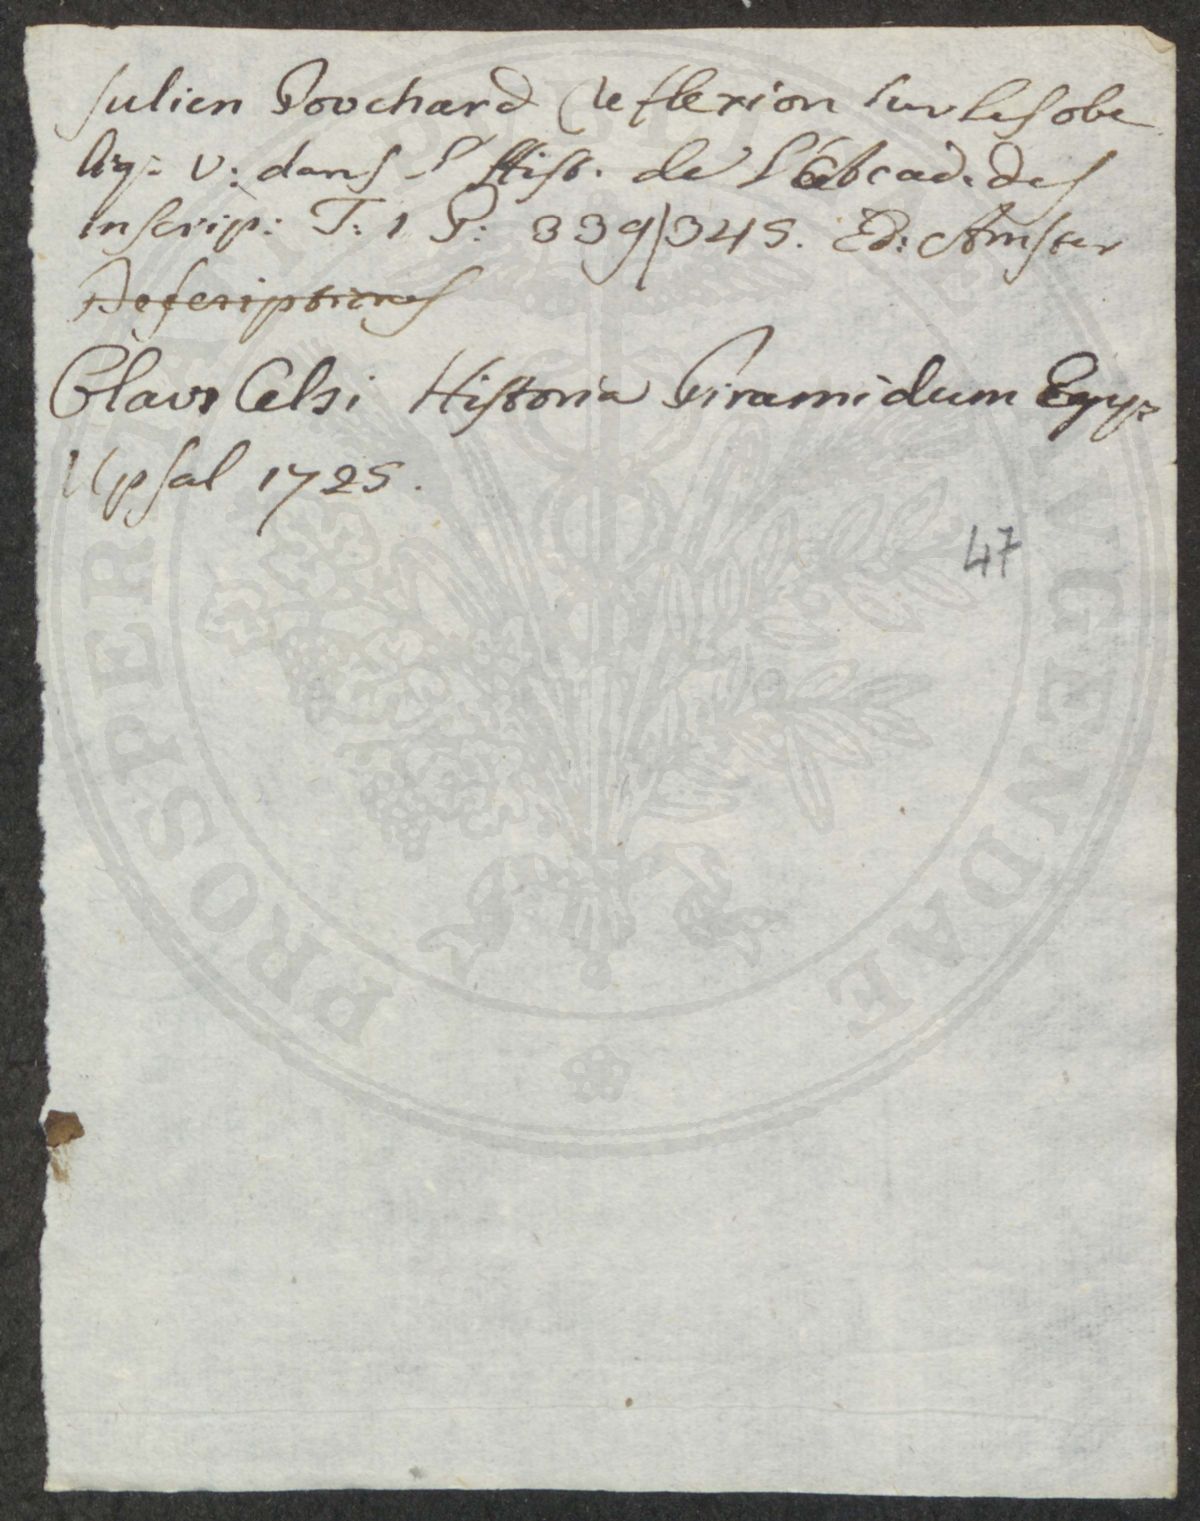 Julien Pouchard Reflexion sur les obe
liz: v: dans l'Hist. de l'Acad. des
Inscrip: T: 1 P: 339/345. Ed: Amster
Descriptiones
Olavs Celsi Historia Piramidum Egyp:
Upsal 1725.
47
PROSPER
AUGENDAE